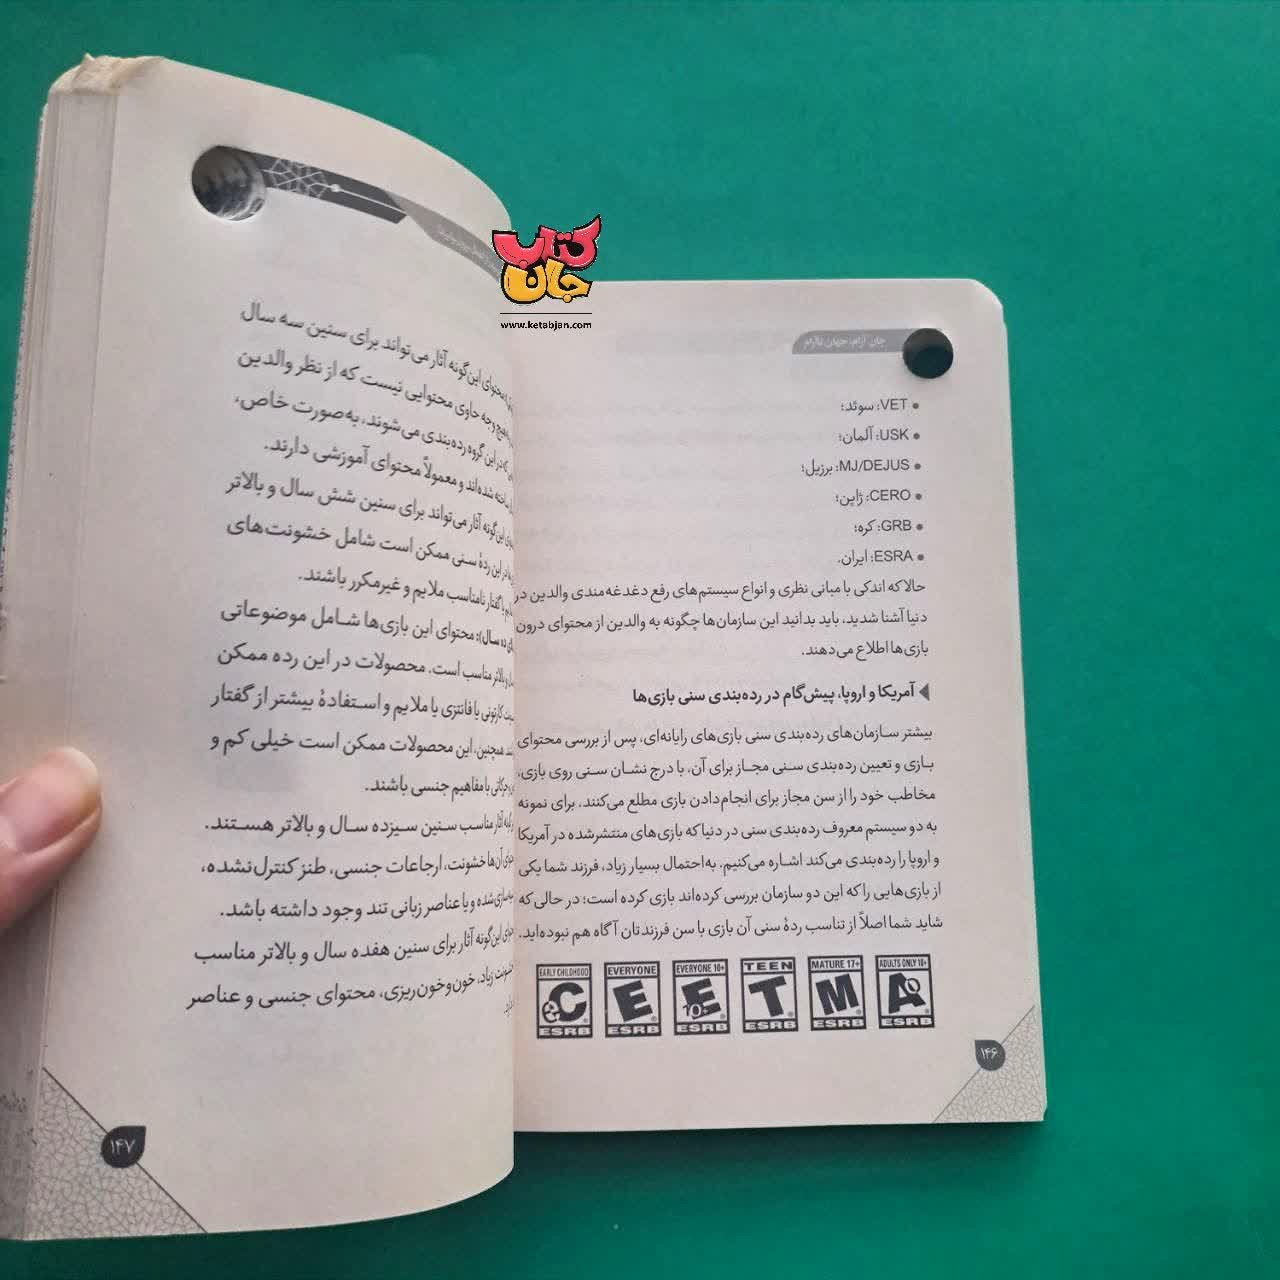 کتاب
جان
www.ketabjan.com
جان آرام، جهان ناآرام
• VET: سوئد؛
• USK: آلمان؛
• MJ/DEJUS: برزیل؛
• CERO: ژاپن؛
• GRB: کره؛
• ESRA: ایران.
حالا که اندکی با مبانی نظری و انواع سیستم‌های رفع دغدغه‌مندی والدین در
دنیا آشنا شدید، باید بدانید این سازمان‌ها چگونه به والدین از محتوای درون
بازی‌ها اطلاع می‌دهند.
آمریکا و اروپا، پیش‌گام در رده‌بندی سنی بازی‌ها
بیشتر سازمان‌های رده‌بندی سنی بازی‌های رایانه‌ای، پس از بررسی محتوای
بازی و تعیین رده‌بندی سنی مجاز برای آن، با درج نشان سنی روی بازی،
مخاطب خود را از سن مجاز برای انجام‌دادن بازی مطلع می‌کنند. برای نمونه
به دو سیستم معروف رده‌بندی سنی در دنیا که بازی‌های منتشرشده در آمریکا
و اروپا را رده‌بندی می‌کند اشاره می‌کنیم. به‌احتمال بسیار زیاد، فرزند شما یکی
از بازی‌هایی را که این دو سازمان بررسی کرده‌اند بازی کرده است؛ در حالی که
شاید شما اصلاً از تناسب ردهٔ سنی آن بازی با سن فرزندتان آگاه هم نبوده‌اید.
EARLY CHILDHOOD EVERYONE EVERYONE 10+ TEEN MATURE 17+ ADULTS ONLY 18+
eC E E 10+ T M AO
ESRB ESRB ESRB ESRB ESRB ESRB
۱۴۶
محتوای این‌گونه آثار می‌تواند برای سنین سه سال
هیچ وجه حاوی محتوایی نیست که از نظر والدین
که در این گروه رده‌بندی می‌شوند، به‌صورت خاص،
ساخته شده‌اند و معمولاً محتوای آموزشی دارند.
این‌گونه آثار می‌تواند برای سنین شش سال و بالاتر
در این ردهٔ سنی ممکن است شامل خشونت‌های
یا گفتار نامناسب ملایم و غیرمکرر باشند.
ده سال): محتوای این بازی‌ها شامل موضوعاتی
و بالاتر مناسب است. محصولات در این رده ممکن
کارتونی یا فانتزی یا ملایم و استفادهٔ بیشتر از گفتار
همچنین، این محصولات ممکن است خیلی کم و
حرکاتی با مفاهیم جنسی باشند.
آثار مناسب سنین سیزده سال و بالاتر هستند.
آن‌ها خشونت، ارجاعات جنسی، طنز کنترل‌نشده،
و یا عناصر زبانی تند وجود داشته باشد.
این‌گونه آثار برای سنین هفده سال و بالاتر مناسب
خشونت زیاد، خون‌وخون‌ریزی، محتوای جنسی و عناصر
۱۴۷